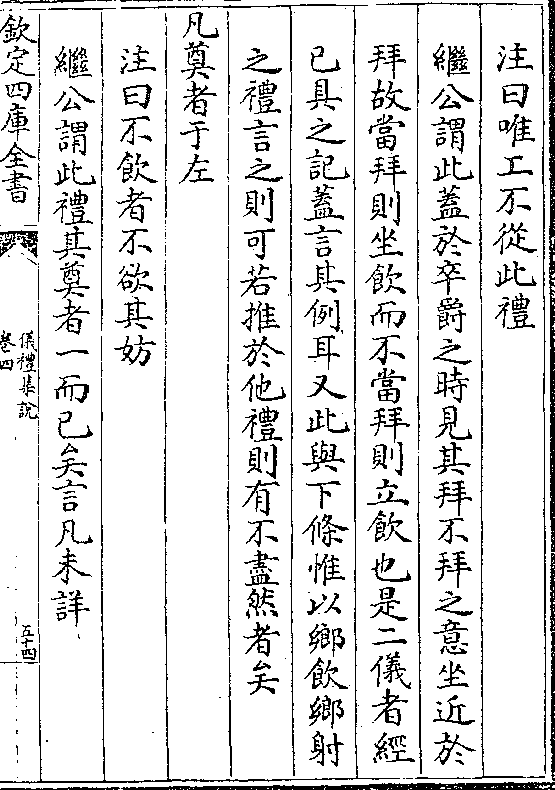 注曰唯工不從此禮
繼公謂此蓋於卒爵之時見其拜不拜之意坐近於
拜故當拜則坐飲而不當拜則立飲也是二儀者經
已具之記蓋言其例耳又此與下條惟以鄉飲鄉射
之禮言之則可若推於他禮則有不盡然者矣
凡奠者于左
注曰不飲者不欲其妨
繼公謂此禮其奠者一而已矣言凡未詳
欽定四庫全書
儀禮集說
卷四
五十四